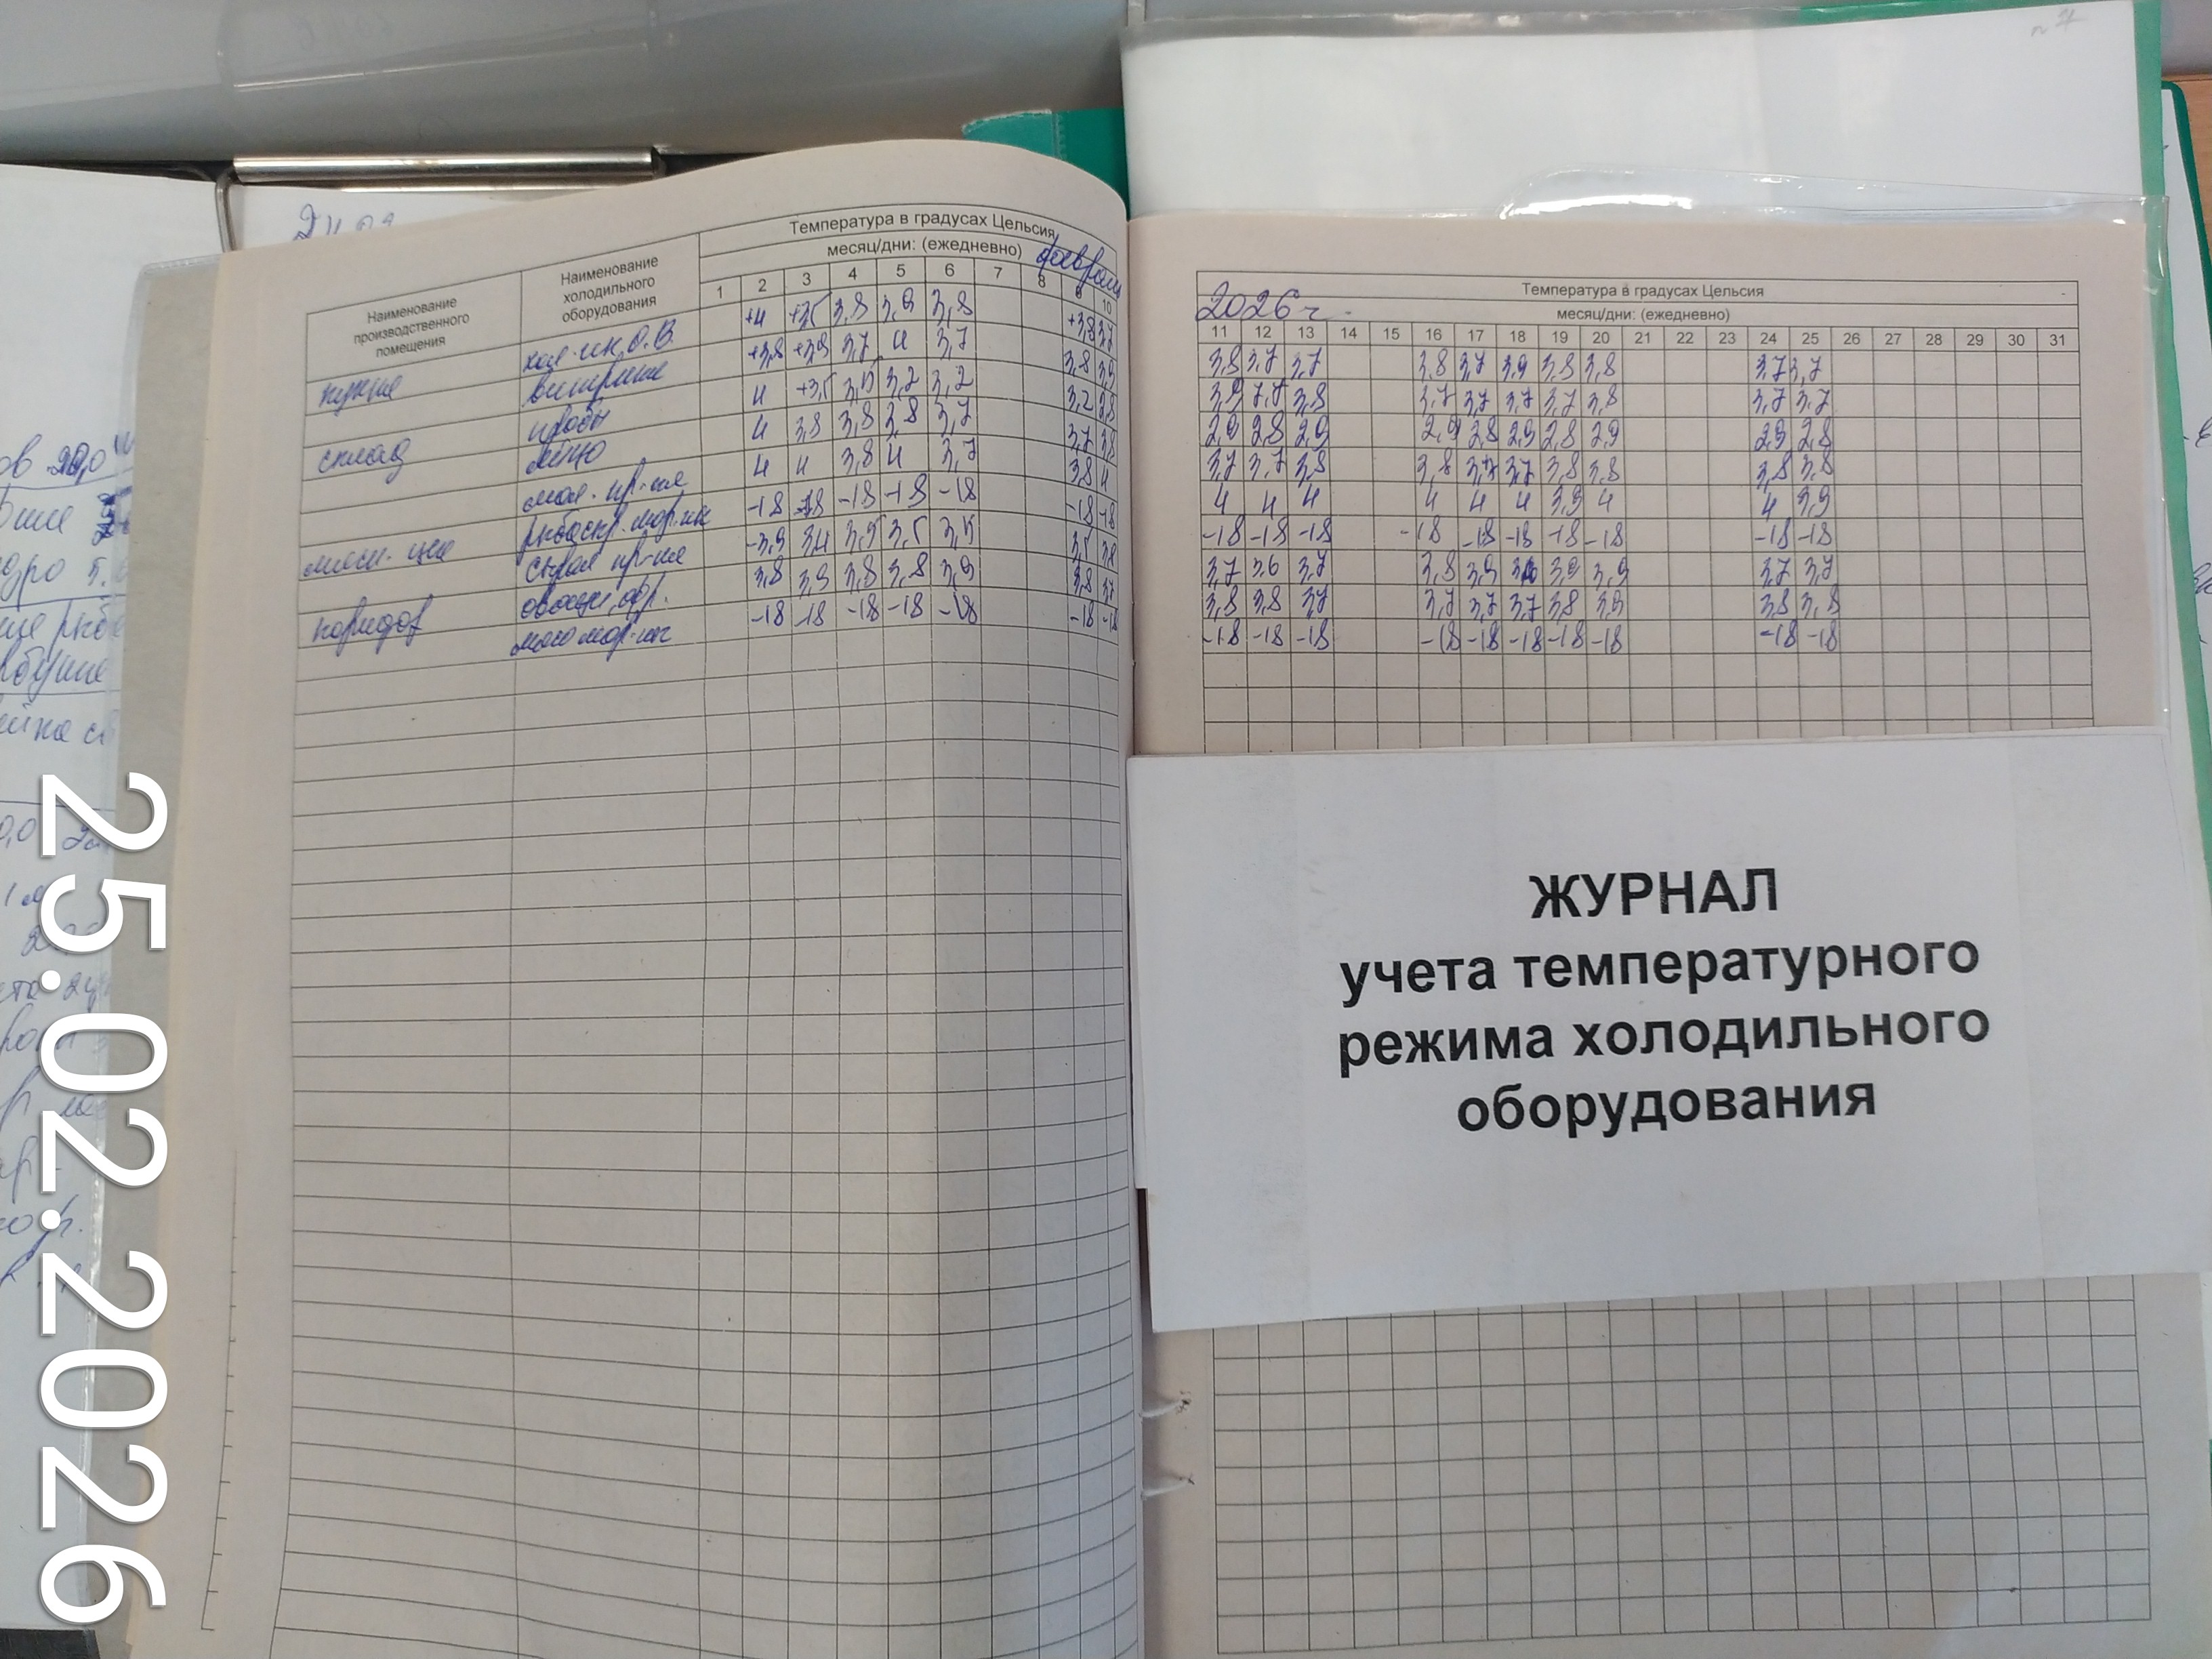 Температура в градусах Цельсия
месяц/дни: (ежедневно) февраль
Наименование производственного помещения
Наименование холодильного оборудования
1 2 3 4 5 6 7 8 9 10
кухня хол-ик О.В. +4 +3,5 3,8 3,9 3,8 +3,8 3,7
витрина +3,8 +3,9 3,7 4 3,7 3,8 3,9
склад пробы 4 +3,5 3,5 3,2 3,2 3,2 2,8
яйцо 4 3,8 3,8 3,8 3,7 3,7 3,8
мол. пр-ия 4 4 3,8 4 3,7 3,8 4
мясн. цех -18 -18 -18 -18 -18 -18 -18
сырая пр-ия -3,9 3,4 3,5 3,5 3,5 3,5 3,8
коридор овощи, фр. 3,8 3,9 3,8 3,8 3,9 3,8 3,7
мясо мор-ик -18 -18 -18 -18 -18 -18 -18
2026 г.
Температура в градусах Цельсия
месяц/дни: (ежедневно)
11 12 13 14 15 16 17 18 19 20 21 22 23 24 25 26 27 28 29 30 31
3,8 3,7 3,7 3,8 3,7 3,9 3,8 3,8 3,7 3,7
3,9 7,7 3,8 3,7 3,7 3,7 3,7 3,8 3,7 3,7
2,9 2,8 2,9 2,9 2,8 2,9 2,8 2,9 2,9 2,8
3,7 3,7 3,8 3,8 3,7 3,7 3,8 3,8 3,8 3,8
4 4 4 4 4 4 3,9 4 4 3,9
-18 -18 -18 -18 -18 -18 -18 -18 -18 -18
3,7 3,6 3,7 3,8 3,9 3,9 3,9 3,7 3,7
3,8 3,8 3,7 3,7 3,7 3,7 3,8 3,9 3,8 3,8
-18 -18 -18 -18 -18 -18 -18 -18 -18 -18
ЖУРНАЛ
учета температурного
режима холодильного
оборудования
25.02.2026